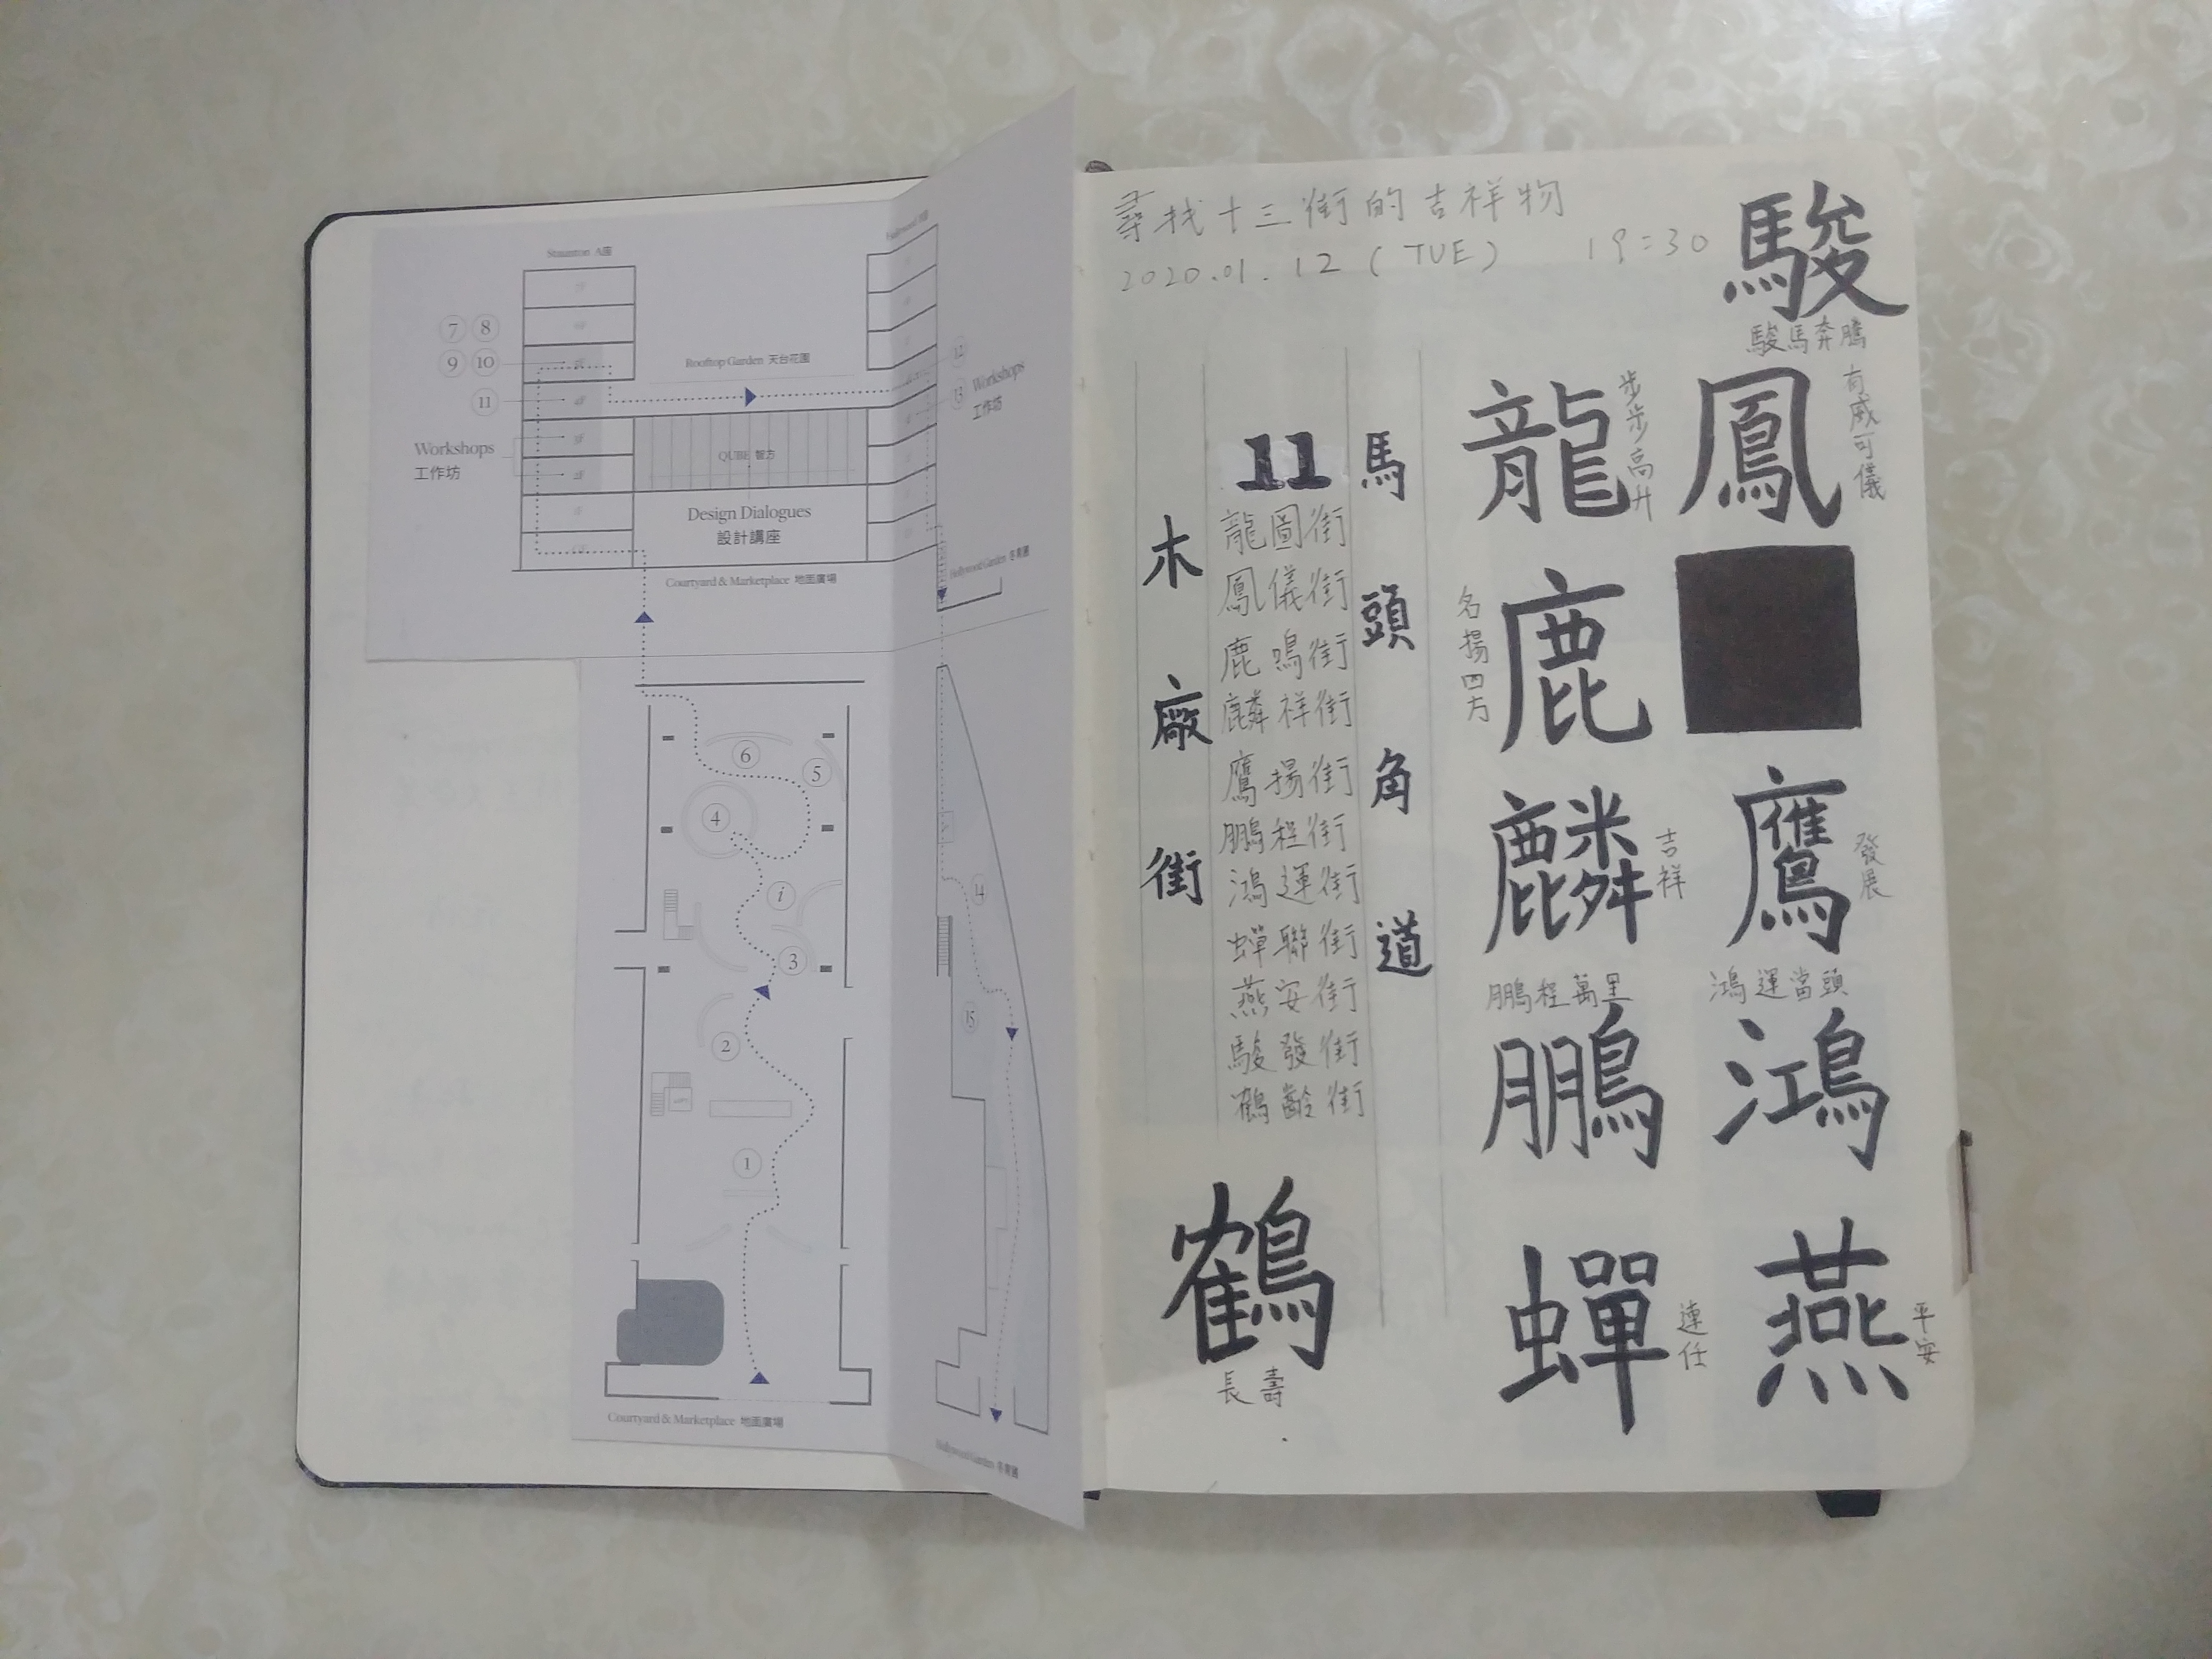 Staunton A座
7 8
9 10
11
Rooftop Garden 天台花園
12
13
Workshops
工作坊
Workshops
工作坊
QUBE 智方
Design Dialogues
設計講座
Courtyard & Marketplace 地面廣場
Hollywood Garden 荷李活花園
6
5
4
i
3
2
1
14
15
Courtyard & Marketplace 地面廣場
尋找十三街的吉祥物
2020.01.12 (TUE) 19:30
駿
駿馬奔騰
鳳
有威可儀
龍
步步高升
鹿
名揚四方
麟
吉祥
鷹
發展
鵬程萬里
鵬
鴻運當頭
鴻
蟬
連任
燕
平安
馬頭角道
11
龍圖街
鳳儀街
鹿鳴街
麟祥街
鷹揚街
鵬程街
鴻運街
蟬聯街
燕安街
駿發街
鶴齡街
木廠街
鶴
長壽